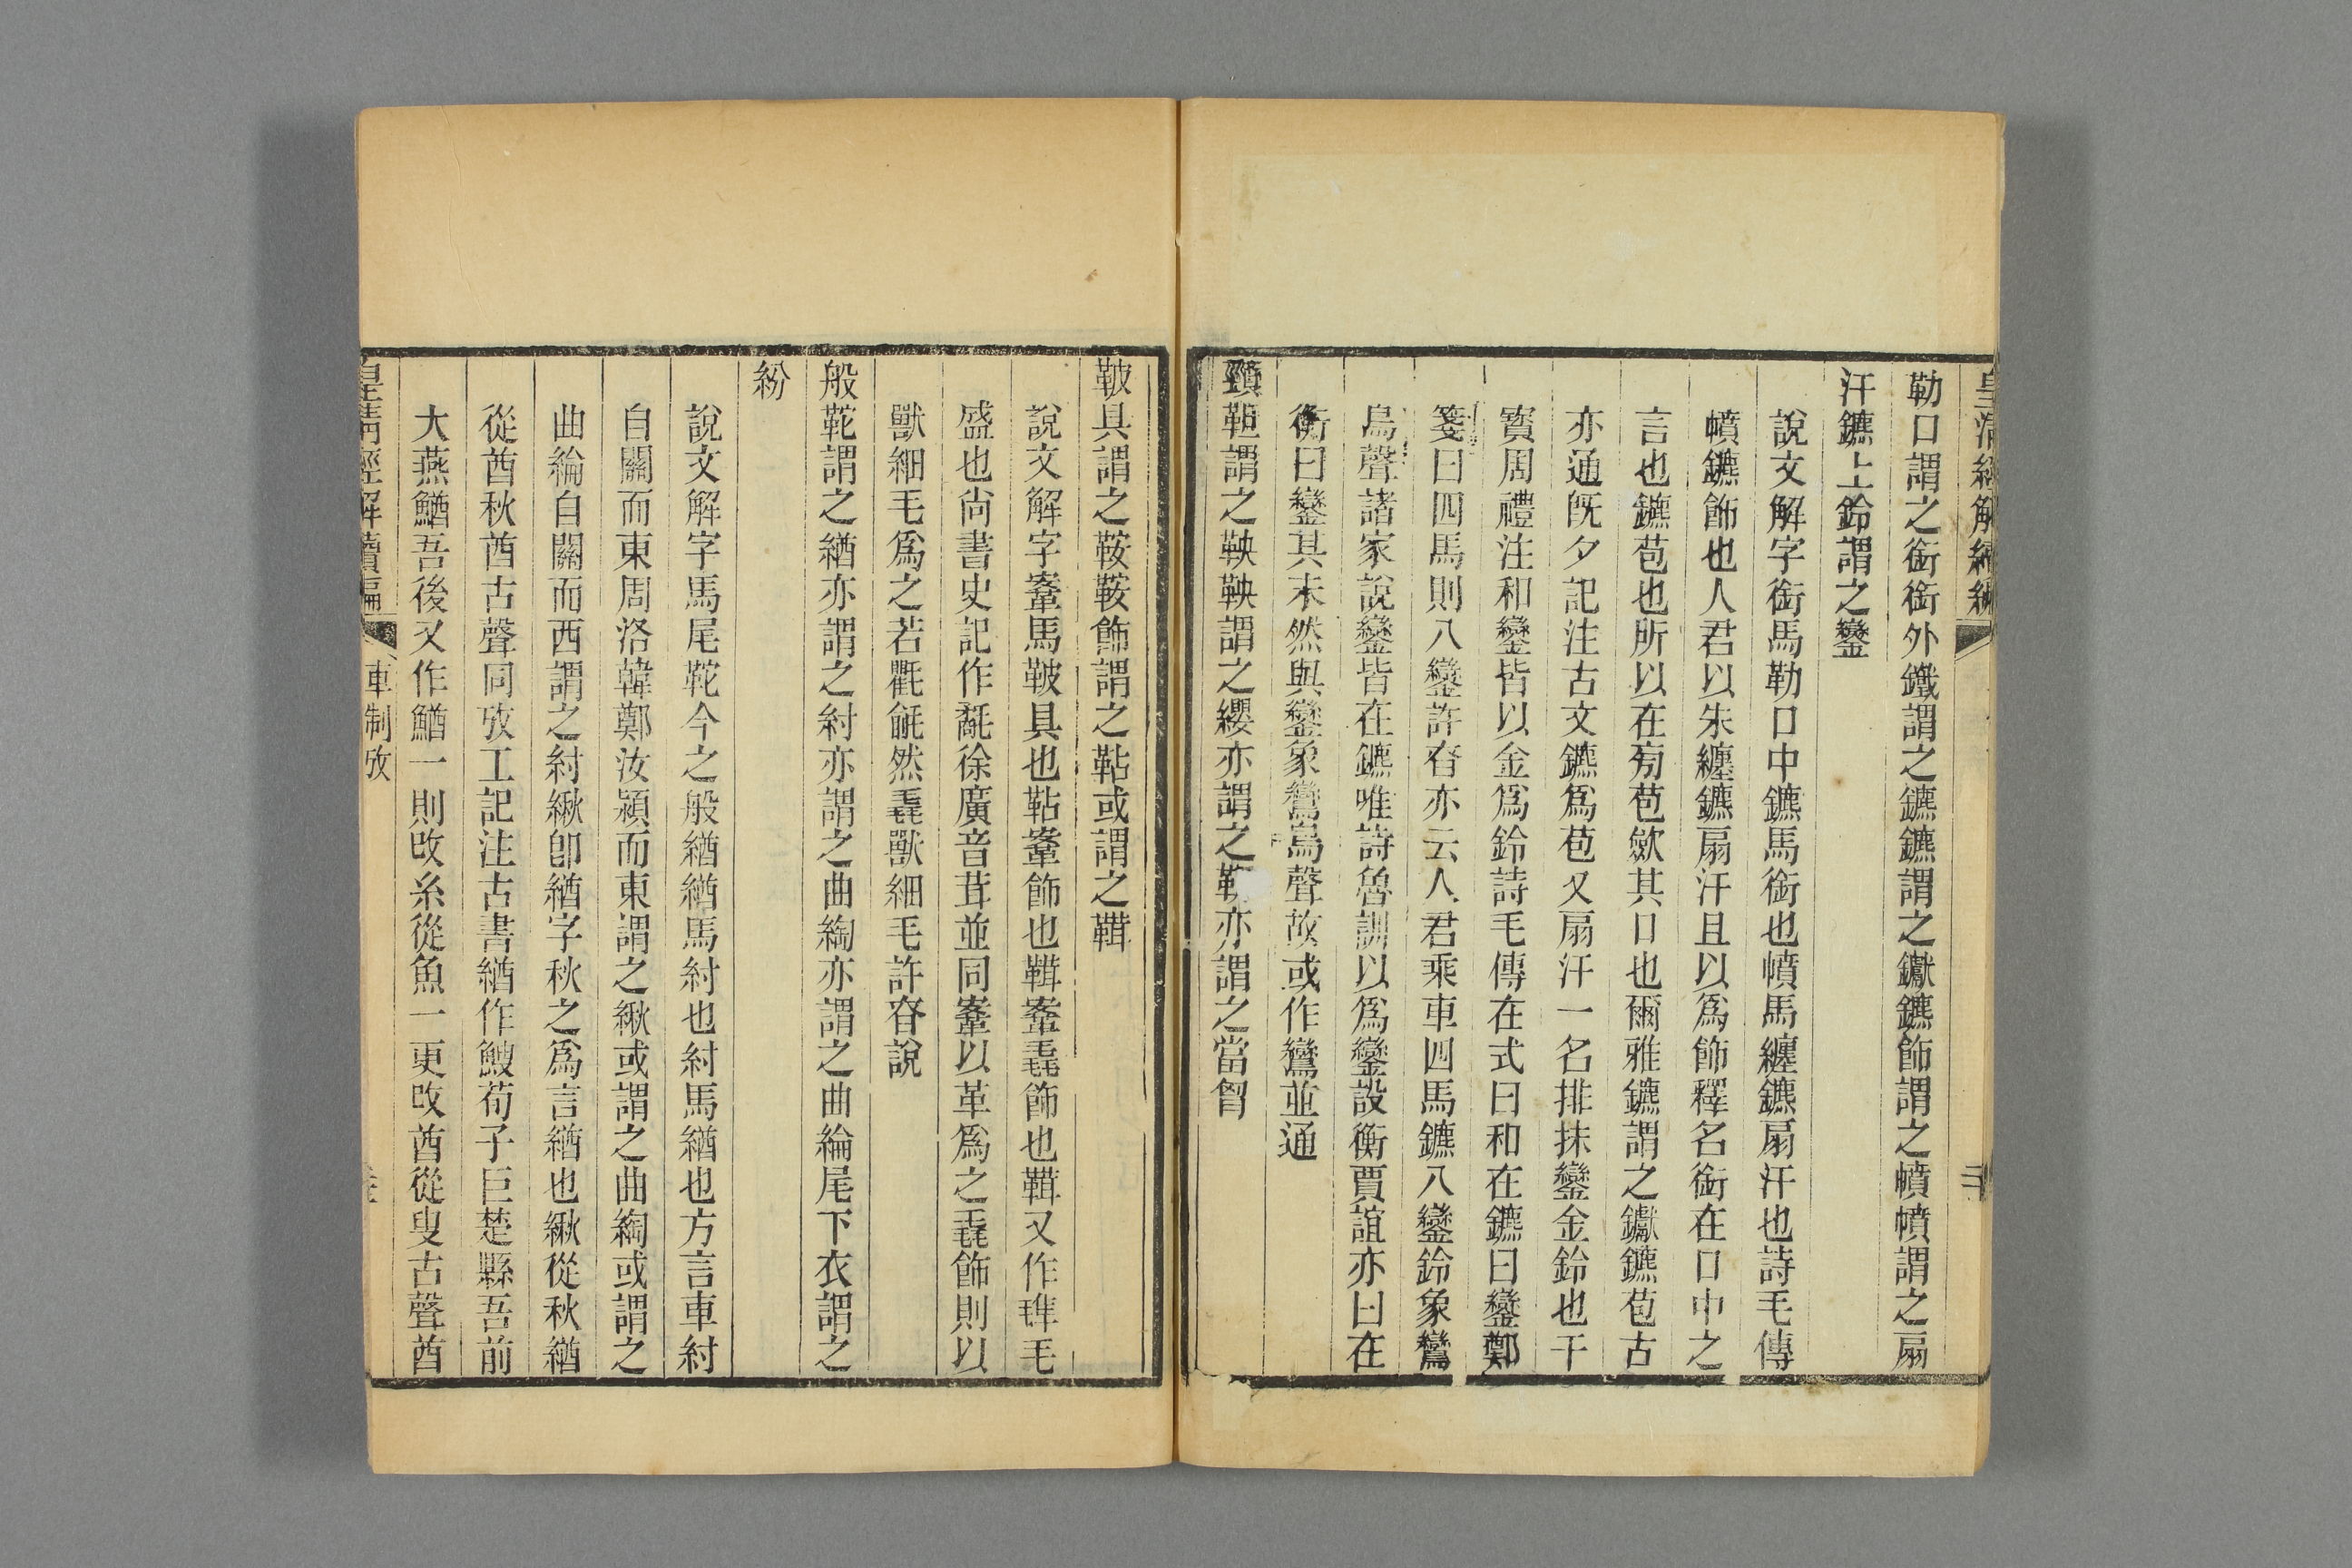 勒口謂之銜銜外鐵謂之鑣鑣謂之钀鑣飾謂之幩幩謂之扇
汗鑣上鈴謂之鑾
說文解字銜馬勒口中鑣馬銜也幩馬纏鑣扇汗也詩毛傳
幩鑣飾也人君以朱纏鑣扇汗且以爲飾釋名銜在口中之
言也鑣苞也所以在旁苞歛其口也爾雅鑣謂之钀鑣苞古
亦通旣夕記注古文鑣爲苞又扇汗一名排抹鑾金鈴也干
寳周禮注和鑾皆以金爲鈴詩毛傳在式曰和在鑣曰鑾鄭
箋曰四馬則八鑾許眘亦云人君乘車四馬鑣八鑾鈴象鸞
鳥聲諸家說鑾皆在鑣唯詩魯訓以爲鑾設衡賈誼亦曰在
衡曰鑾其末然與鑾象鸞鳥聲故或作鸞並通
頸靼謂之鞅鞅謂之纓亦謂之亦謂之當胷
鞁具謂之鞍鞍飾謂之鞊或謂之鞙
說文解字鞌馬鞁具也鞊鞌飾也鞙鞌毳飾也鞙又作毛
盛也尙書史記作氄徐廣音茸並同鞌以革爲之毳飾則以
獸細毛爲之若氍毹然毳獸細毛許眘說
般鞁謂之緧亦謂之紂亦謂之曲綯亦謂之曲綸尾下衣謂之
紛
說文解字馬尾鞁今之般緧緧馬紂也紂馬緧也方言車紂
自關而東周洛韓鄭汝潁而東謂之緅或謂之曲綯或謂之
曲綸自關而西謂之紂緅卽緧字秋之爲言緧也緅從秋緧
從酋秋酋古聲同攷工記注古書緧作鰒荀子巨楚縣吾前
大燕鰌吾後又作鰌一則改糸從魚一更改酋從叟古聲酋
皇淸經解續編
車制攷